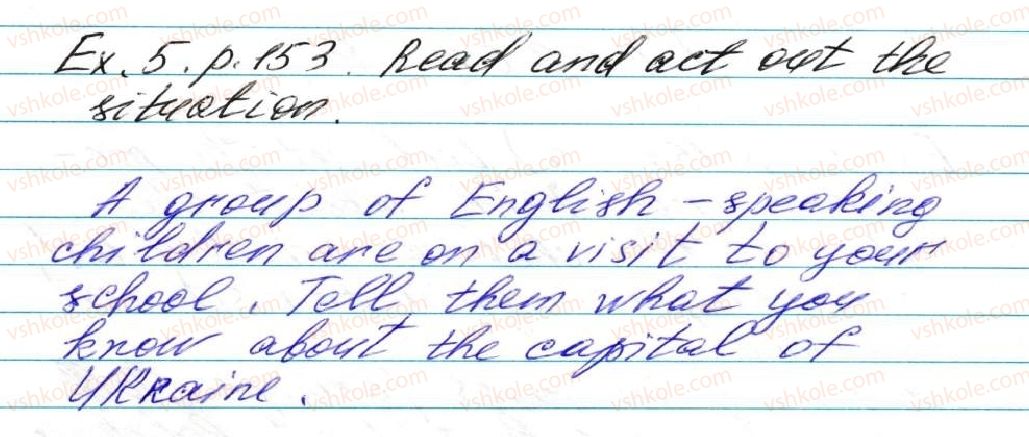 Ex. 5. p. 153. Read and act out the
situation.
A group of English-speaking
children are on a visit to your
school. Tell them what you
know about the capital of
Ukraine.